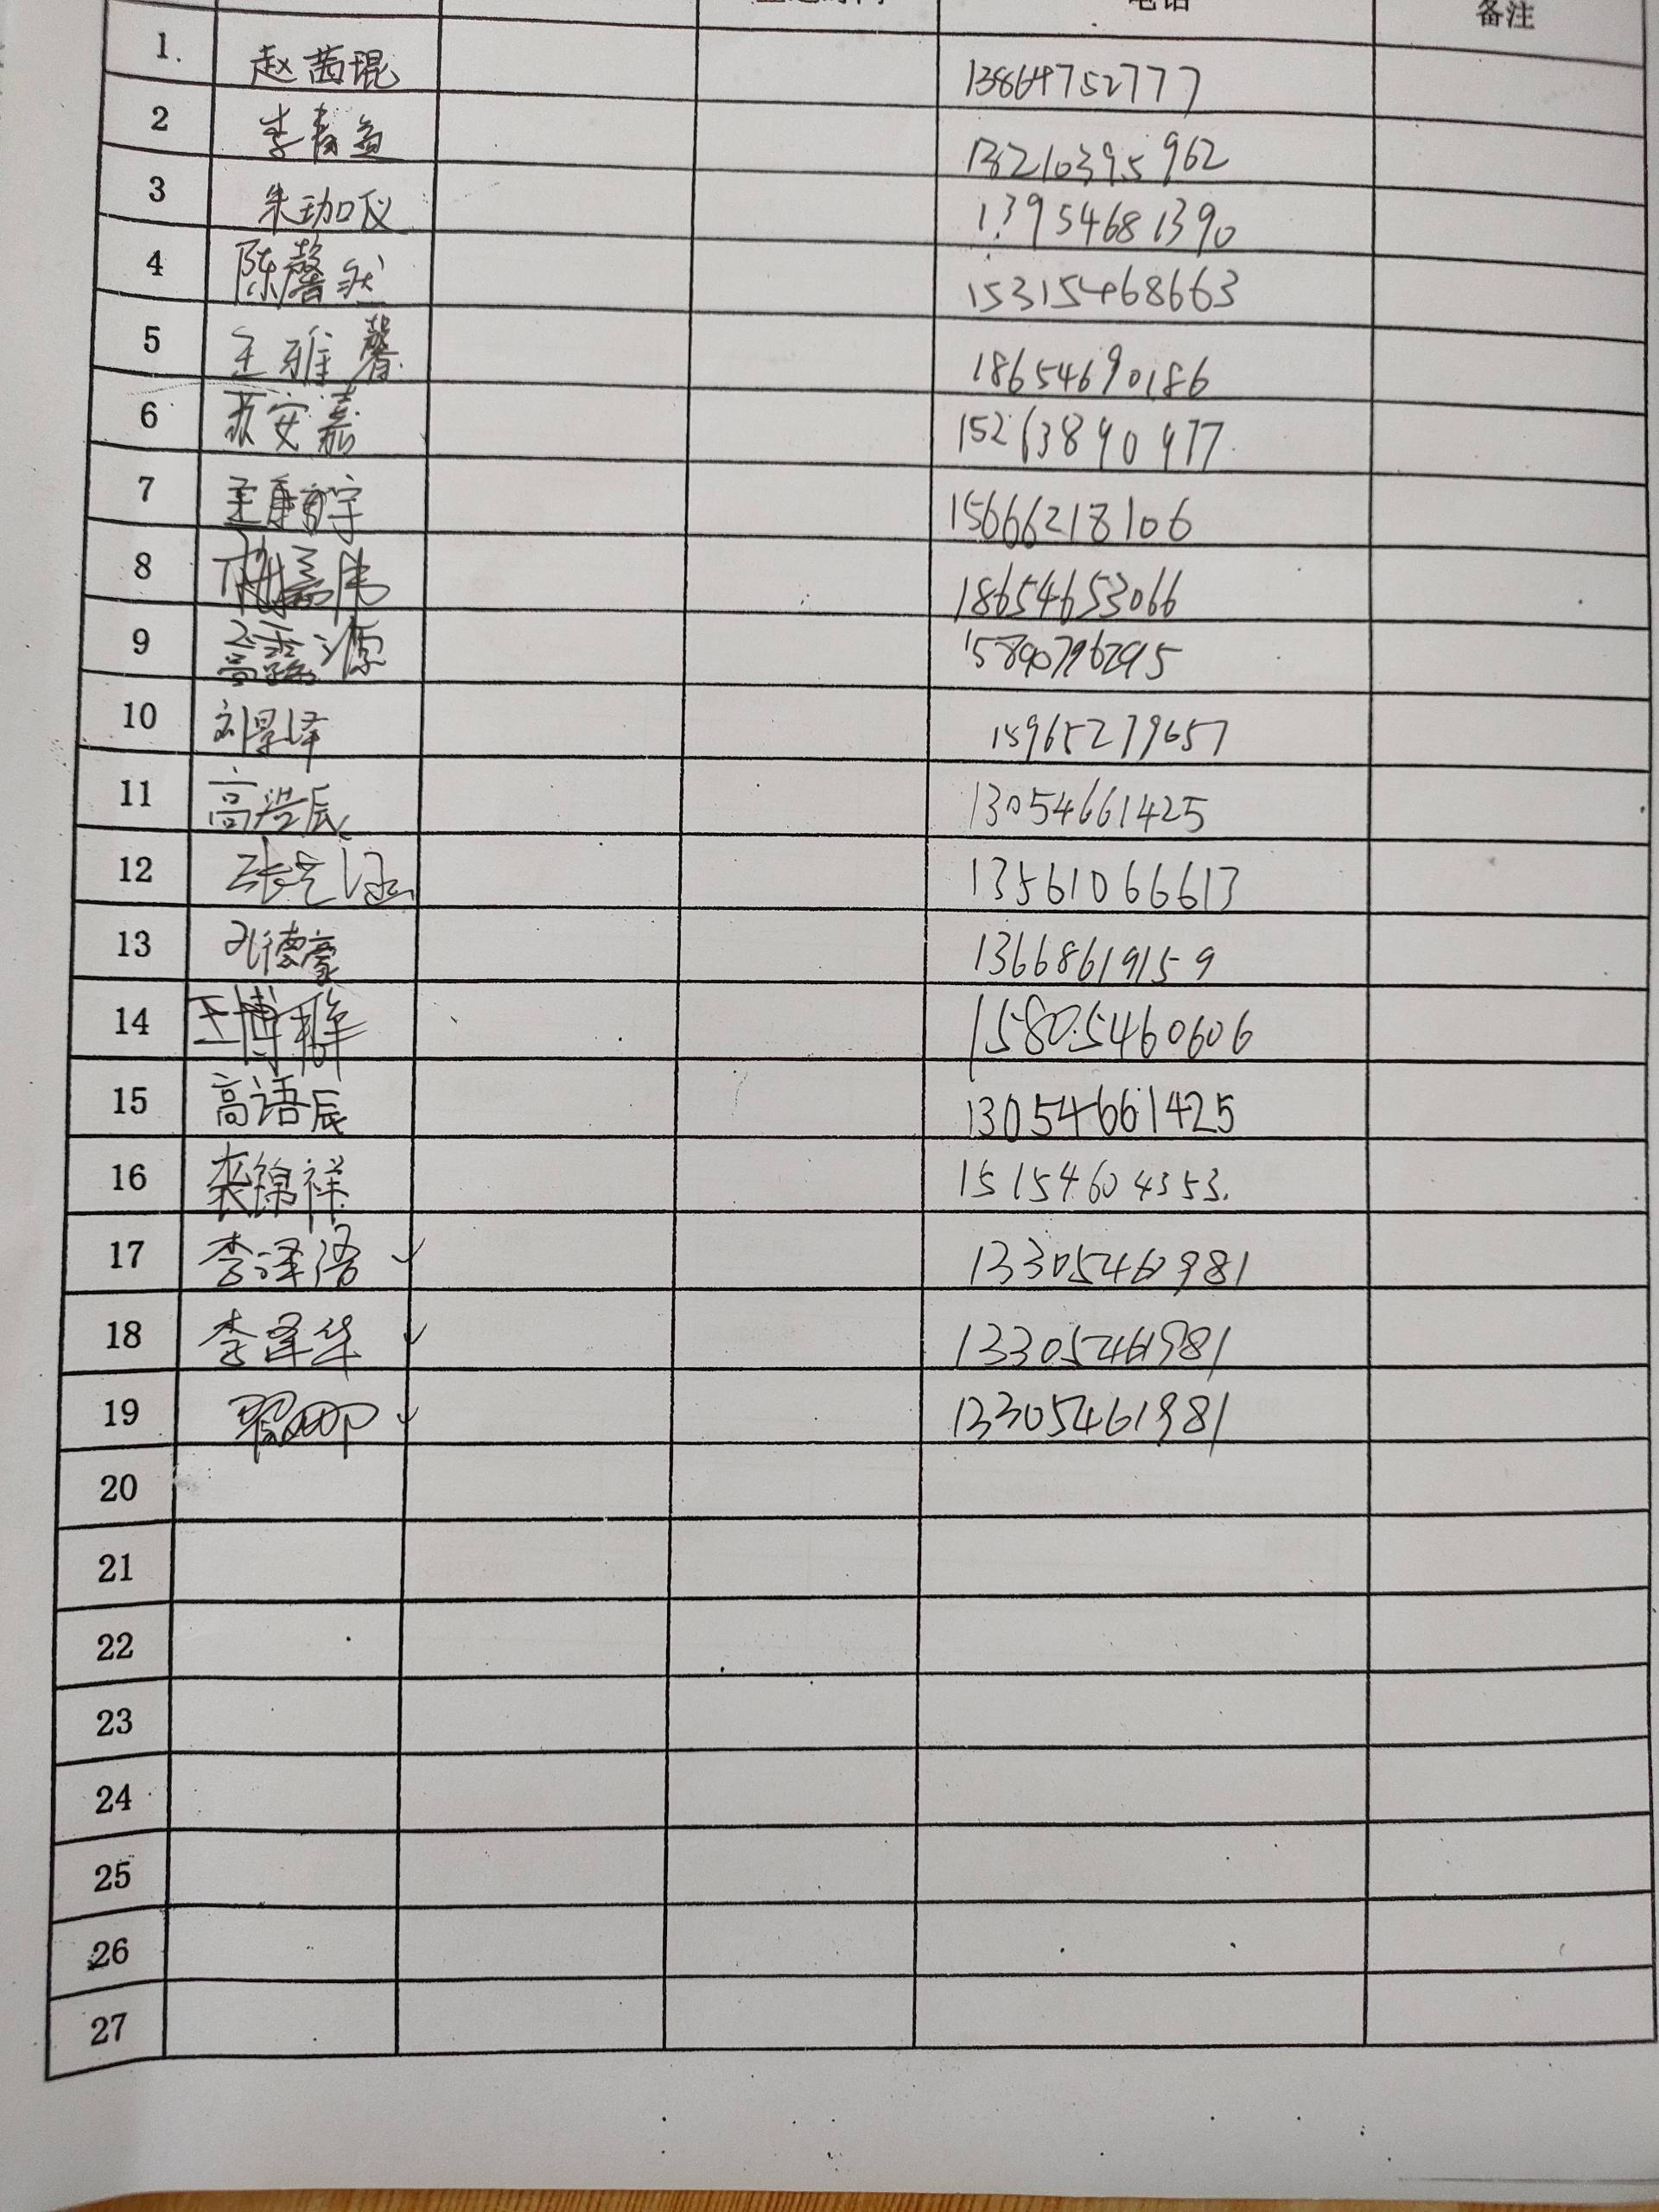 电话 备注
1. 赵茜琨 13864752777
2 李春益 13210395962
3 朱珈仪 13954681390
4 陈馨 15315468663
5 王雅馨 18654690186
6 苏安嘉 15263890977
7 宇 15666218106
8 18654653066
9 源 15890796295
10 刘昊泽 15965279657
11 高浩辰 13054661425
12 张艺涵 13561066613
13 孔德豪 13668619159
14 王博群 15805460606
15 高语辰 13054661425
16 裴锦祥 15154604353.
17 李泽语 ✓ 13305460981
18 李泽华 ✓ 13305461981
19 ✓ 13305461981
20
21
22
23
24
25
26
27